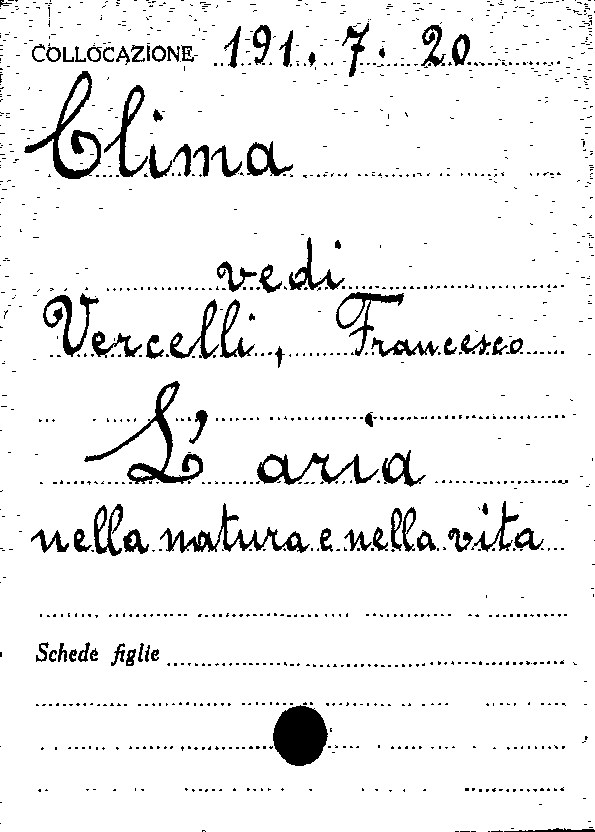 COLLOCAZIONE 191. 7. 20
Clima
vedi
Vercelli, Francesco
L'aria
nella natura e nella vita
Schede figlie